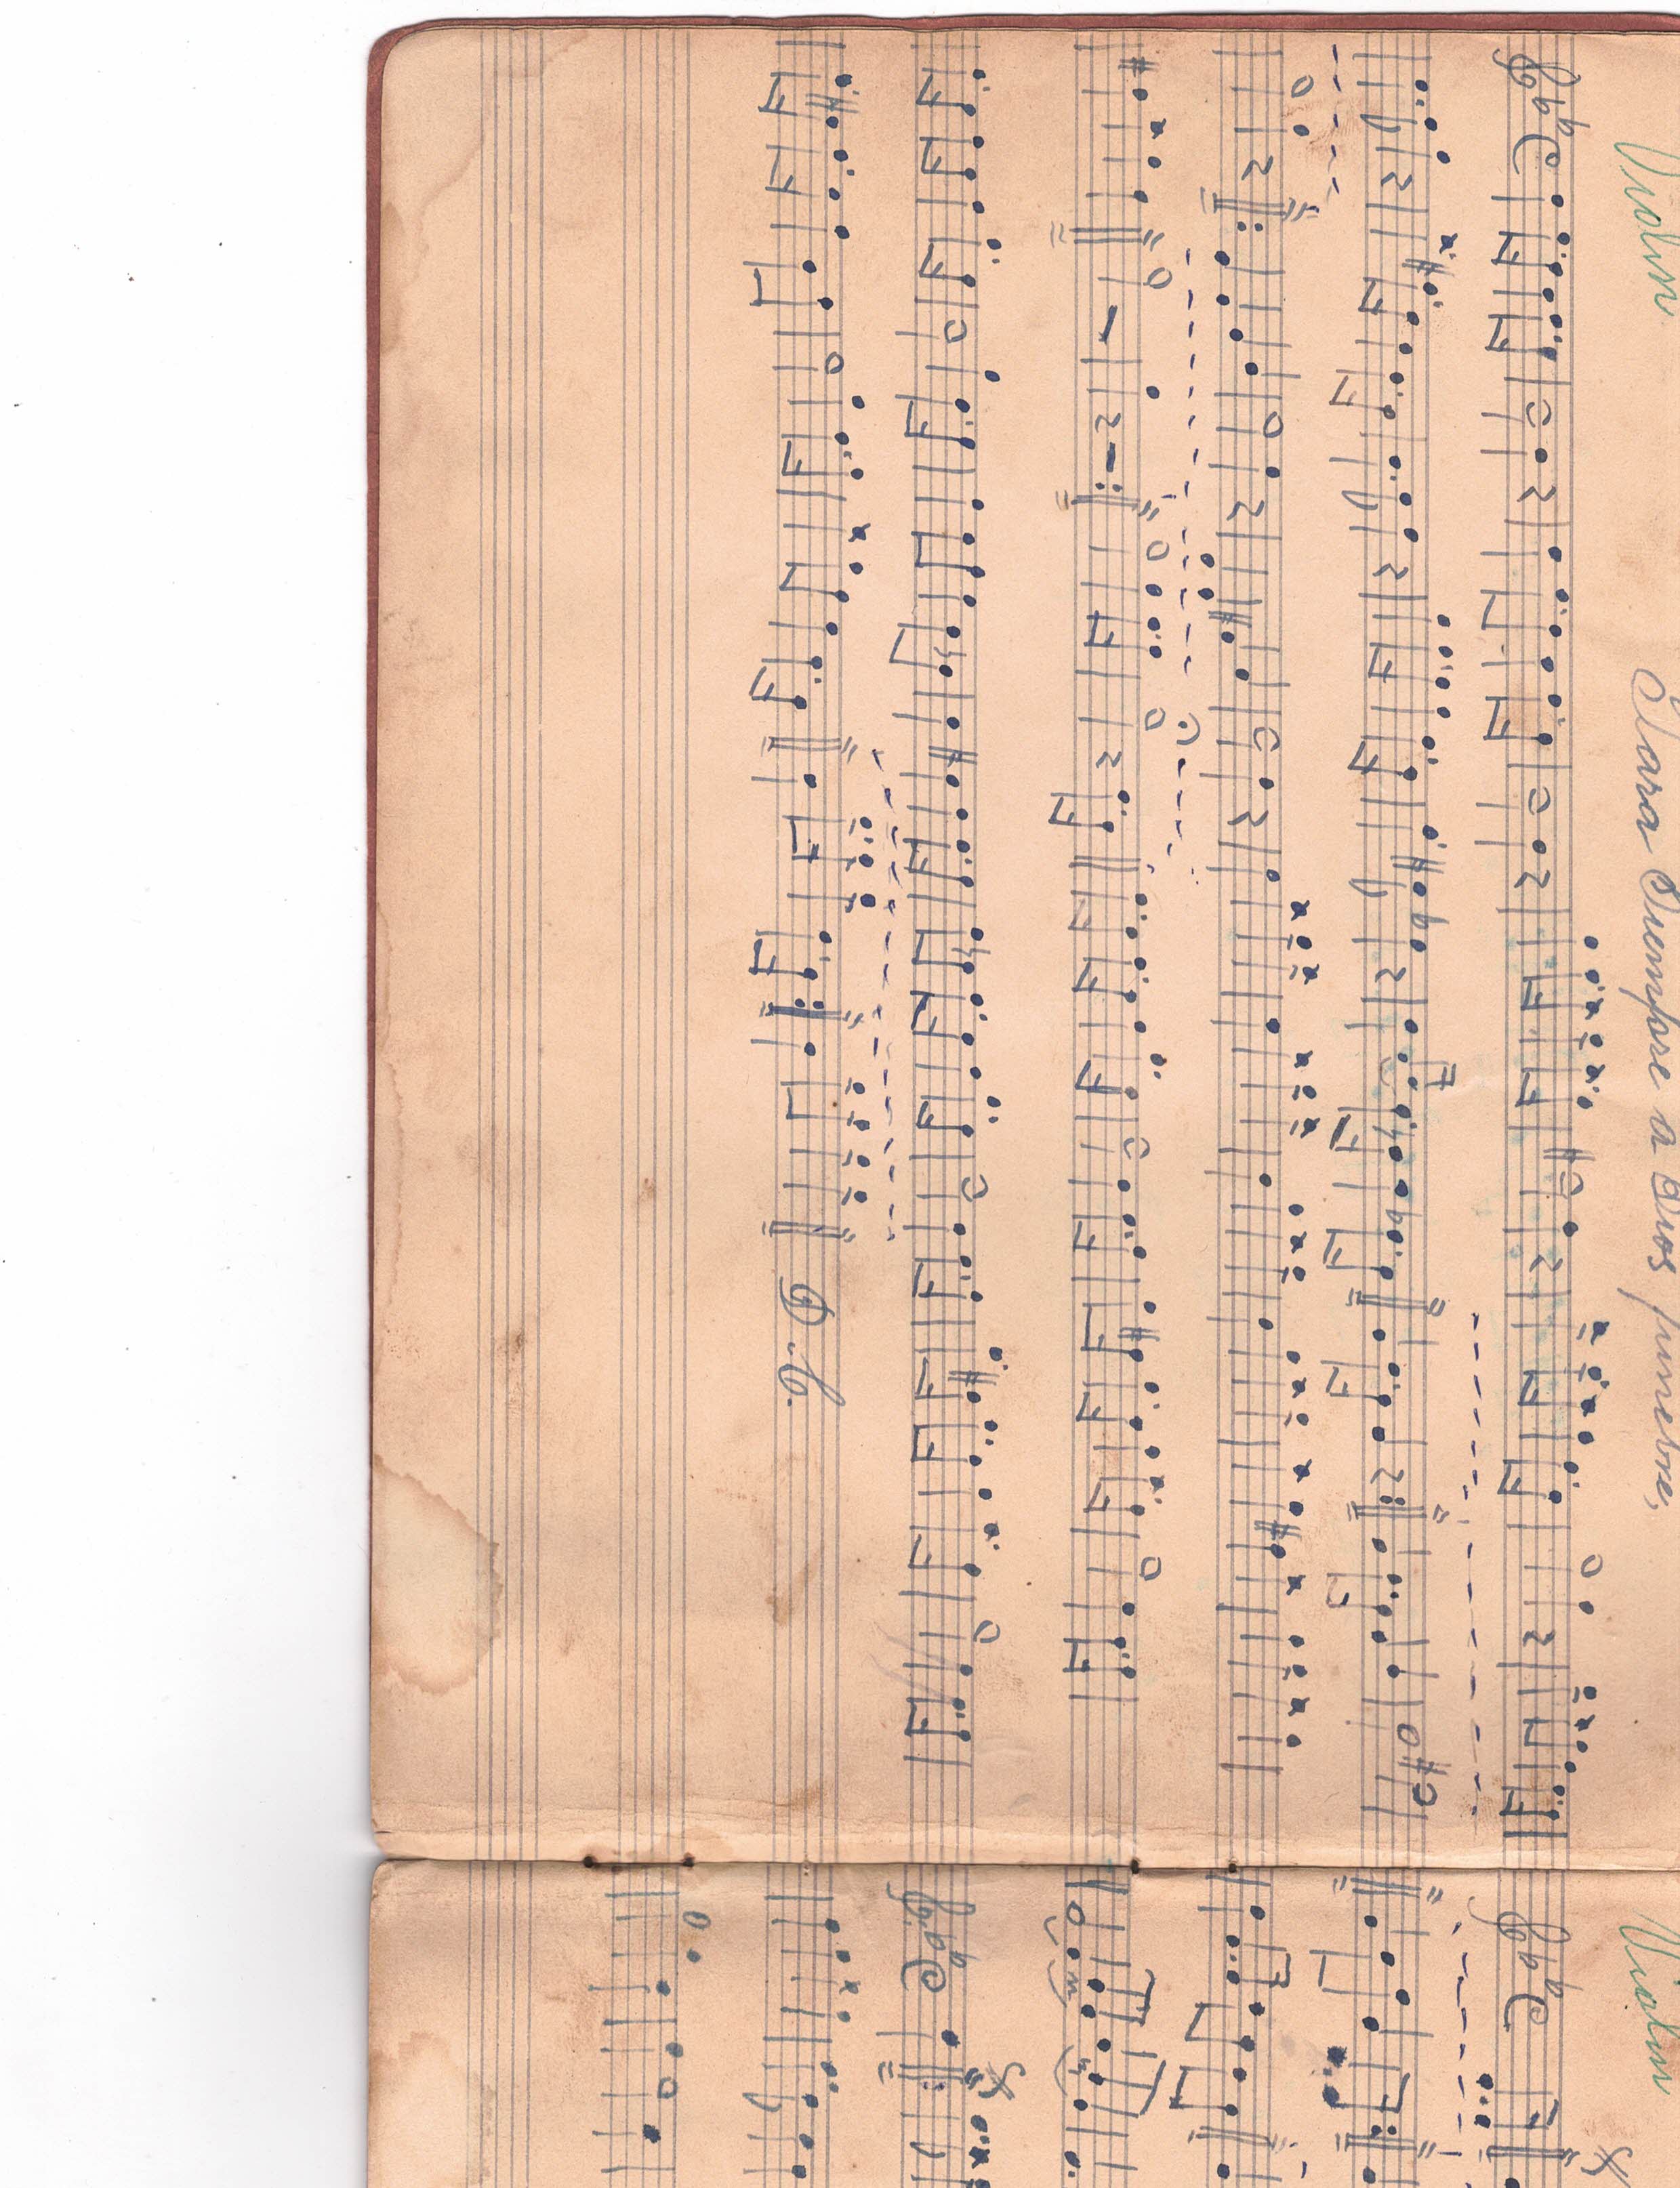 Violin
Para Siempre a Dios funebre,
D.C.
Violin